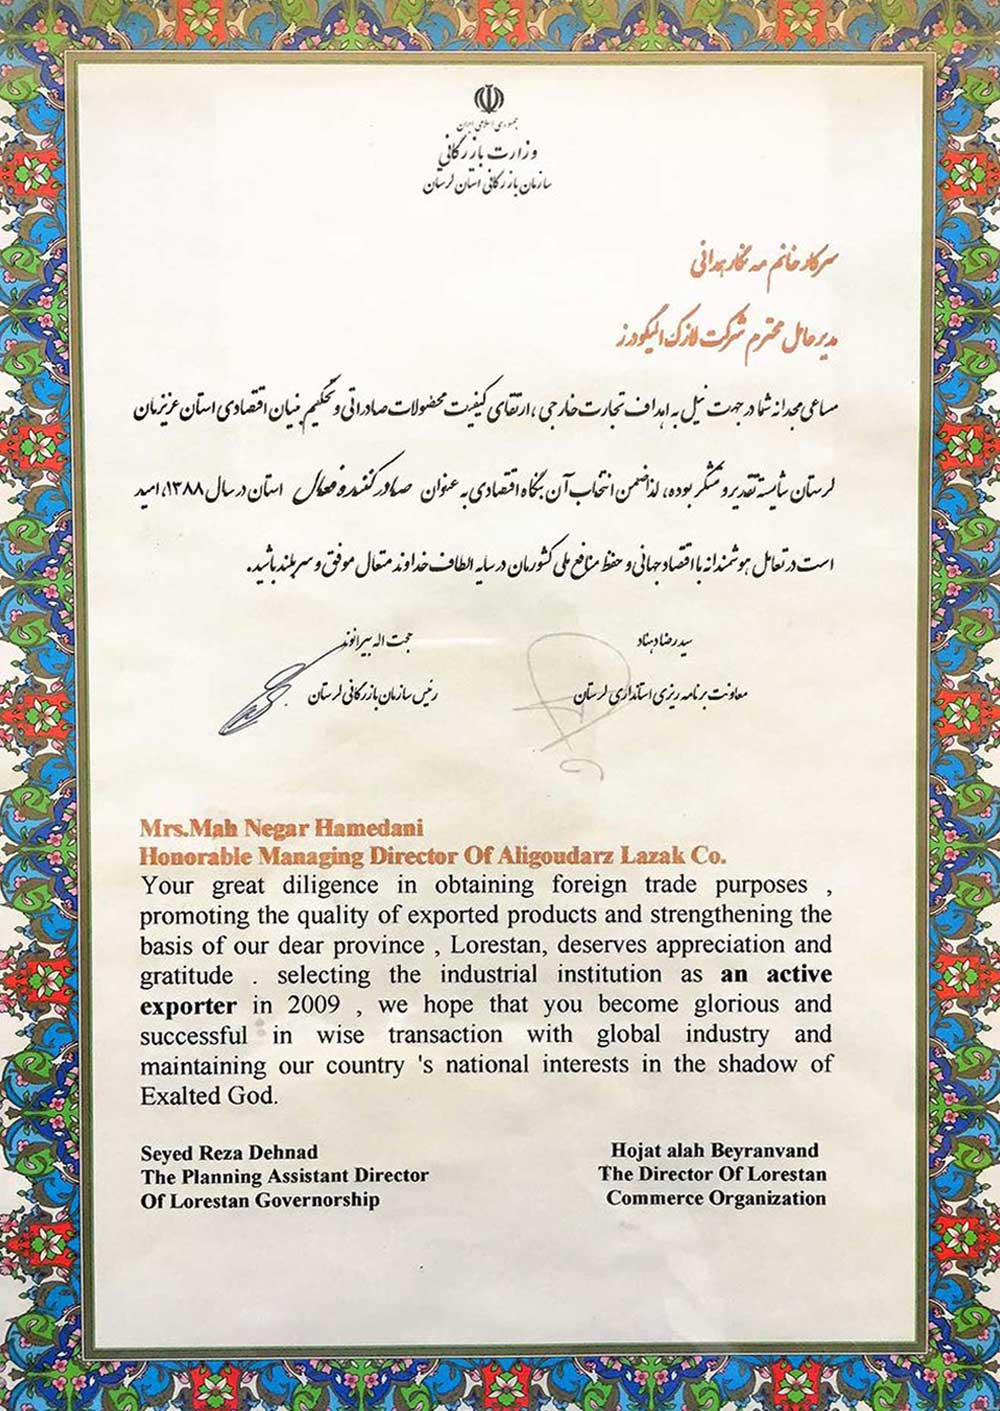 جمهوری اسلامی ایران
وزارت بازرگانی
سازمان بازرگانی استان لرستان
سرکار خانم مه نگار همدانی
مدیرعامل محترم شرکت لازک الیگودرز
مساعی مجدانه شما در جهت نیل به اهداف تجارت خارجی، ارتقای کیفیت محصولات صادراتی و تحکیم بنیان اقتصادی استان عزیزمان
لرستان شایسته تقدیر و تشکر بوده، لذا ضمن انتخاب آن بنگاه اقتصادی به عنوان صادر کننده فعال استان در سال ۱۳۸۸، امید
است در تعامل هوشمندانه با اقتصاد جهانی و حفظ منافع ملی کشورمان در سایه الطاف خداوند متعال موفق و سربلند باشید.
سید رضا دهناد
حجت اله بیرانوند
معاونت برنامه ریزی استانداری لرستان
رئیس سازمان بازرگانی لرستان
Mrs.Mah Negar Hamedani
Honorable Managing Director Of Aligoudarz Lazak Co.
Your great diligence in obtaining foreign trade purposes ,
promoting the quality of exported products and strengthening the
basis of our dear province , Lorestan, deserves appreciation and
gratitude . selecting the industrial institution as an active
exporter in 2009 , we hope that you become glorious and
successful in wise transaction with global industry and
maintaining our country 's national interests in the shadow of
Exalted God.
Seyed Reza Dehnad
The Planning Assistant Director
Of Lorestan Governorship
Hojat alah Beyranvand
The Director Of Lorestan
Commerce Organization